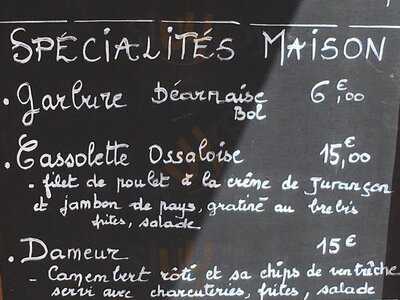 SPÉCIALITÉS MAISON
. Garbure Béarnaise 6€,00
Bol
. Cassolette Ossaloise 15,00 €
- filet de poulet à la crême de Jurançon
et jambon de pays, gratiné au brebis
frites, salade
. Dameur 15 €
- Camembert rôti et sa chips de ventrêche
servi avec charcuteries, frites, salade